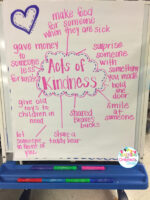 make food
for someone
when they are sick
gave money
to
someone
less
fortunate
surprise
someone
with
something
you made
Acts of
Kindness
hold
the
door
give old
toys to
children in
need
shared
project
books
smile
at
someone
let
someone
in front of
you
share a
teddy bear